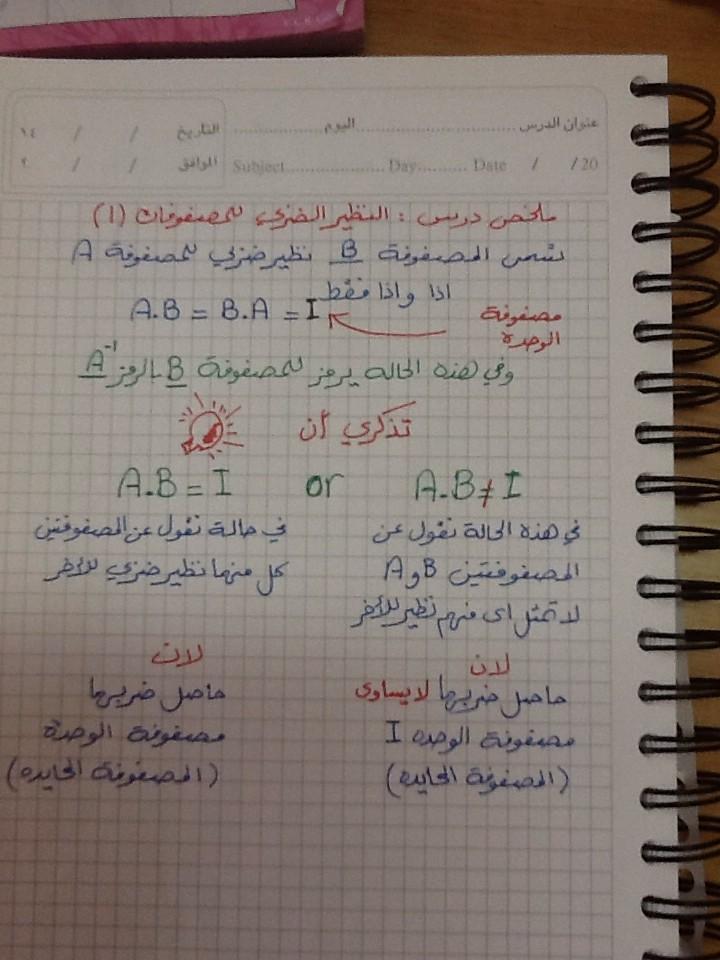 عنوان الدرس ........ اليوم ........ التاريخ / / ١٤
Subject........ Day........ Date / / 20 الموافق / / ٢
ملخص درس : النظير الضربي للمصفوفات (1)
تسمى المصفوفة B نظير ضربي للمصفوفة A
اذا واذا فقط
A.B = B.A = I
مصفوفة
الوحدة
وفي هذه الحاله يرمز للمصفوفة B بالرمز A⁻¹
تذكري أن
A.B ≠ I or A.B = I
في هذه الحالة نقول عن
المصفوفتين B و A
لا تمثل اى منهم نظير للأخر
لان
حاصل ضربها لا يساوى
مصفوفة الوحده I
(المصفوفة المحايده)
في حالة نقول عن المصفوفتين
كل منهما نظير ضربي للأخر
لان
حاصل ضربها
مصفوفة الوحدة
(المصفوفة المحايده)